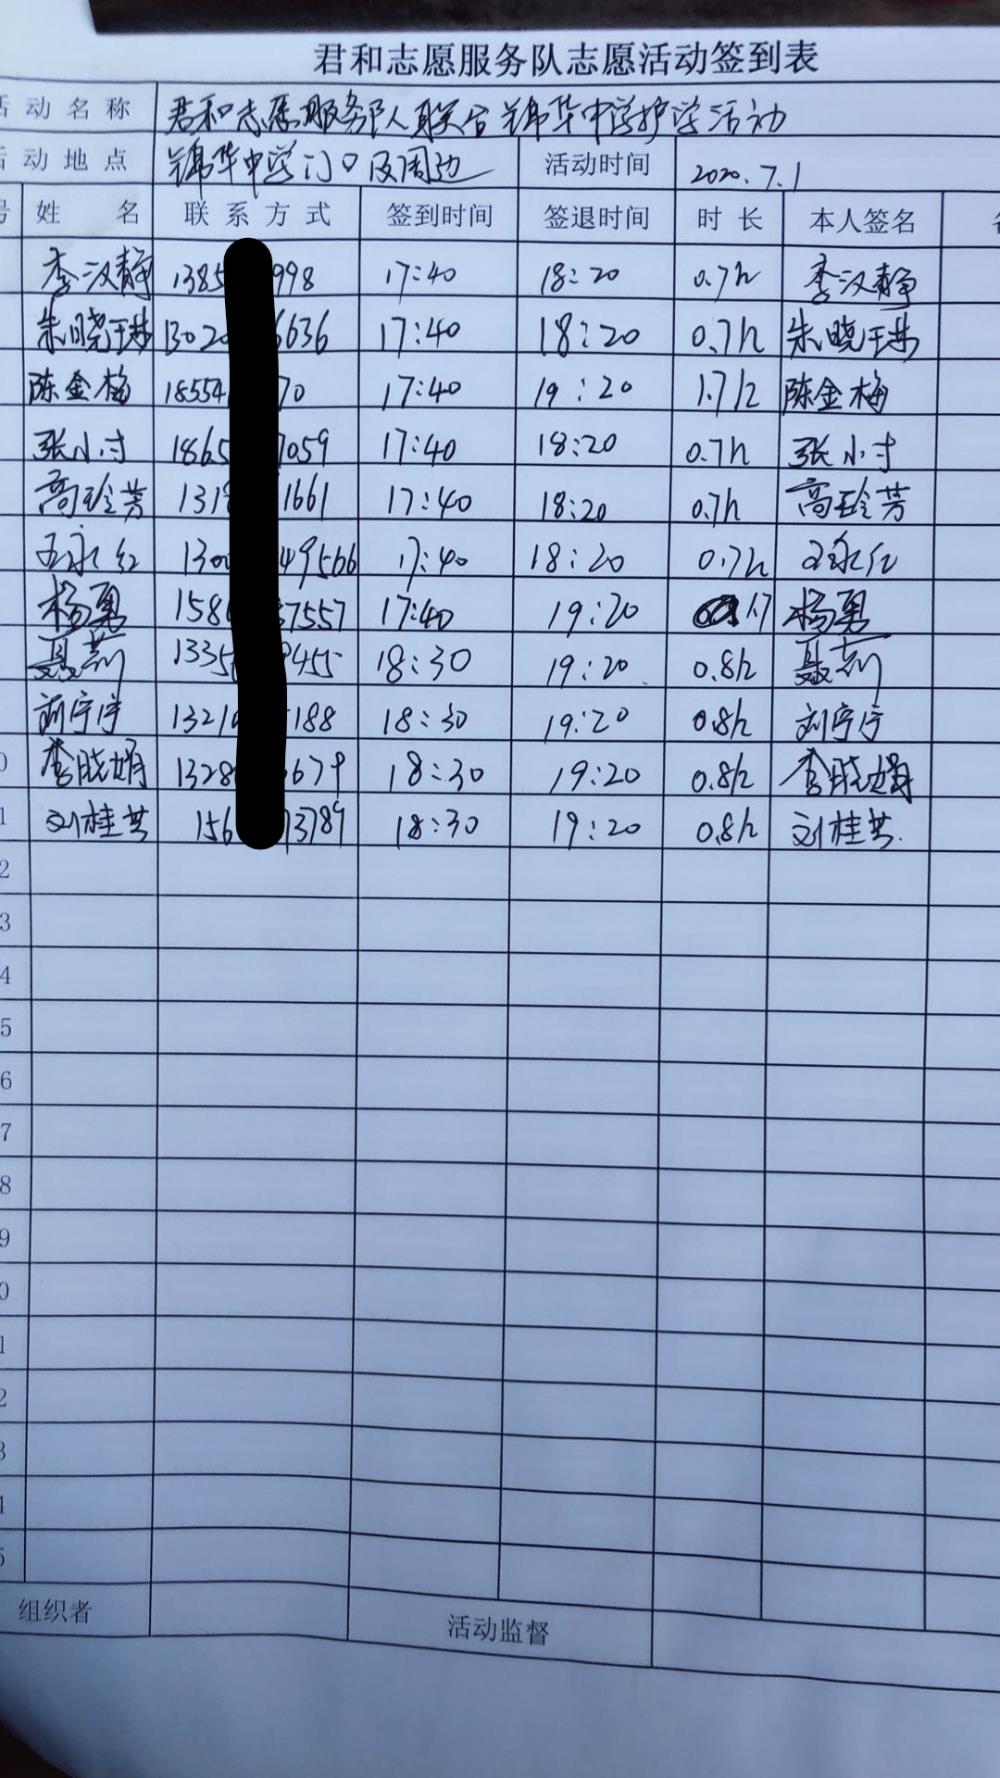 君和志愿服务队志愿活动签到表
活动名称 君和志愿服务队联合锦华中学护学活动
活动地点 锦华中学门口及周边 活动时间 2020.7.1
号 姓 名 联系方式 签到时间 签退时间 时长 本人签名
李汉静 1385 998 17:40 18:20 0.7h 李汉静
朱晓琳 13020 6636 17:40 18:20 0.7h 朱晓琳
陈金梅 18554 70 17:40 19:20 1.7h 陈金梅
张小寸 1865 7059 17:40 18:20 0.7h 张小寸
高玲芳 1318 1661 17:40 18:20 0.7h 高玲芳
王永红 1300 49566 17:40 18:20 0.7h 王永红
杨勇 158 7557 17:40 19:20 1.7 杨勇
聂莉 1335 9455 18:30 19:20 0.8h 聂莉
刘宁宁 1321 188 18:30 19:20 0.8h 刘宁宁
0 李晓娟 1328 679 18:30 19:20 0.8h 李晓娟
1 刘桂芳 156 73789 18:30 19:20 0.8h 刘桂芳
2
3
4
5
6
7
8
9
0
1
2
3
4
5
组织者 活动监督